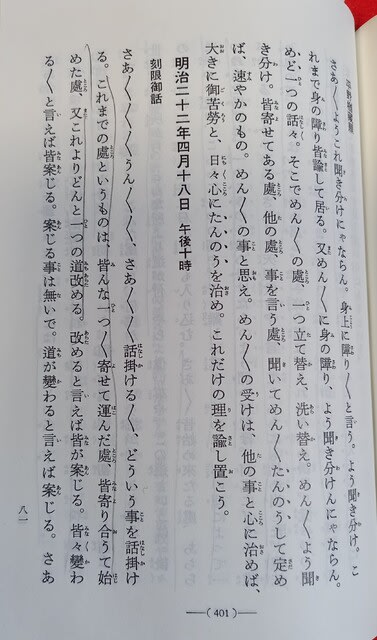 さあ〳〵ようこれ聞き分けにゃならん。身上に障り〳〵と言う。よう聞き分け。こ
れまで身の障り皆諭して居る。又めん〳〵に身の障り、よう聞き分けんにゃならん。
めど一つの話々。そこでめん〳〵の處、一つ立て替え、洗い替え。めん〳〵よう聞
き分け。皆寄せてある處、他の處、事を言う處、聞いてめん〳〵たんのうして定め
ば、速やかのもの。めん〳〵の事と思え。めん〳〵の受けは、他の事と心に治めば、
大きに御苦勞と、日々心にたんのうを治め。これだけの理を諭し置こう。
明治二十二年四月十八日 午後十時
刻限御話
さあ〳〵〳〵〳〵うん〳〵〳〵、さあ〳〵〳〵話掛ける〳〵、どういう事を話掛け
る。これまでの處というものは、皆んな一つ〳〵寄せて運んだ處、皆寄り合うて始
めた處、又これよりどんと一つの道改める。改めると言えば皆が案じる。皆々變わ
る〳〵と言えば皆案じる。案じる事は無いで。道が變わると言えば案じる。さあ
八一
(401)